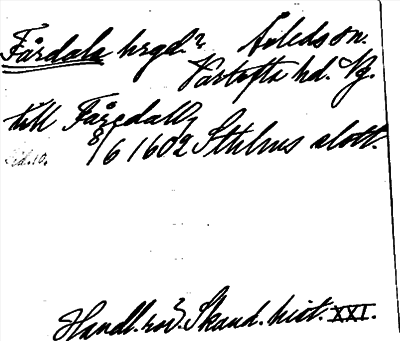 Fårdala hrgd.? Åsleds sn.
Vartofta hd. Vg.
till Fåredall
8/6 1602 Sthlms slott.
Handl. rör. Skand. hist. XXI.